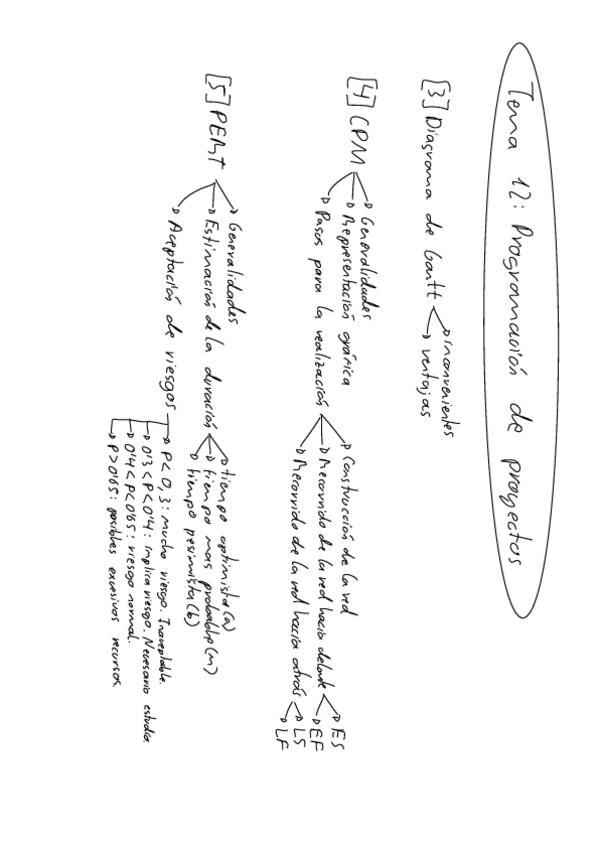 Tema 12: Programación de proyectos
[3] Diagrama de Gantt
inconvenientes
ventajas
[4] CPM
Generalidades
Representación gráfica
Pasos para la realización
Construcción de la red
Recorrido de la red hacia delante
ES
EF
Recorrido de la red hacia atrás
LS
LF
[5] PERT
Generalidades
Estimación de la duración
tiempo optimista (a)
tiempo mas probable (m)
tiempo pesimista (b)
Aceptación de riesgos
P < 0,3: mucho riesgo. Inaceptable.
0'3 < P < 0'4: implica riesgo. Necesario estudiar
0'4 < P < 0'65: riesgo normal.
P > 0'65: posibles excesivos recursos.